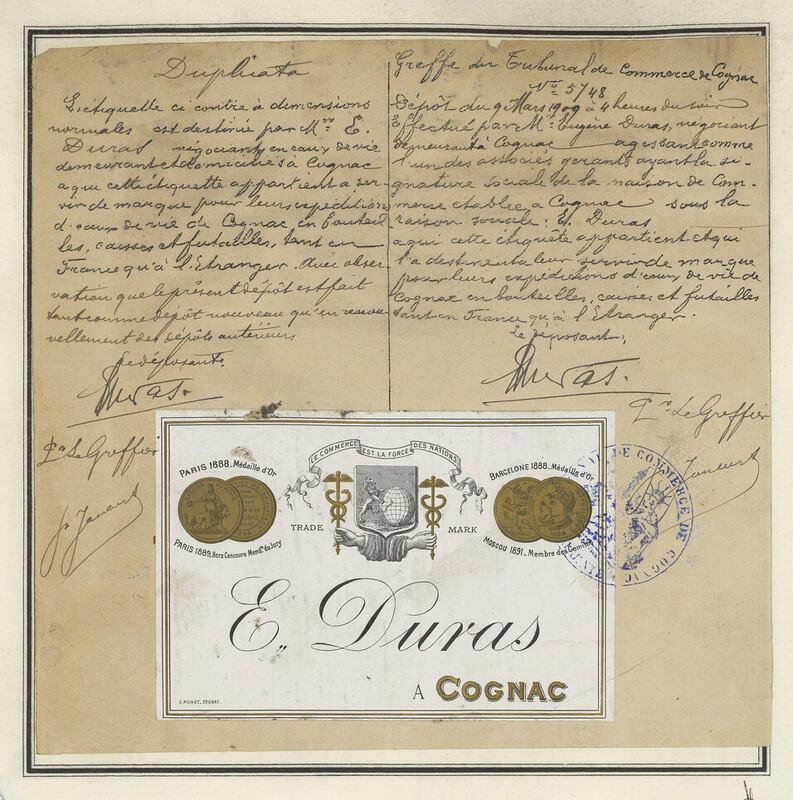 Duplicata
L'étiquette ci contre à dimensions
normales est destinée par Mr E.
Duras négociant en eaux de vie
demeurant et domicilié à Cognac
a qui cette étiquette appartient a ser-
vir de marque pour leurs expéditions
d'eaux de vie de Cognac en bouteil
les, caisses et futailles, tant en
France qu'à l'Etranger. Avec obser
vation que le présent dépôt est fait
tant comme dépôt nouveau qu'en renou
vellement des dépôts antérieurs
Le déposant.
Duras.
Pr Le Greffier
Greffe du Tribunal de Commerce de Cognac
No 5748
Dépôt du 9 Mars 1909 à 4 heures du soir
Effectué par Mr Eugène Duras, négociant
demeurant à Cognac agissant comme
l'un des associés gerants ayant la si-
gnature sociale de la maison de Com-
merce etablie à Cognac sous la
raison sociale: E. Duras
a qui cette étiquête appartient et qui
l'a destinent a leur servir de marque
pour leurs expéditions d'eaux de vie de
Cognac en bouteilles, caisses et futailles
tant en France qu'à l'Etranger.
Le déposant,
Duras.
Pr Le Greffier
LE COMMERCE EST LA FORCE DES NATIONS
PARIS 1888_Médaille d'Or
PARIS 1889_Hors Concours Memb. du Jury
TRADE MARK
BARCELONE 1888_Médaille d'Or
MOSCOU 1891_Membre des Comités
E. Duras
A COGNAC
E. PICHOT_COGNAC.
DE COMMERCE DE COGNAC